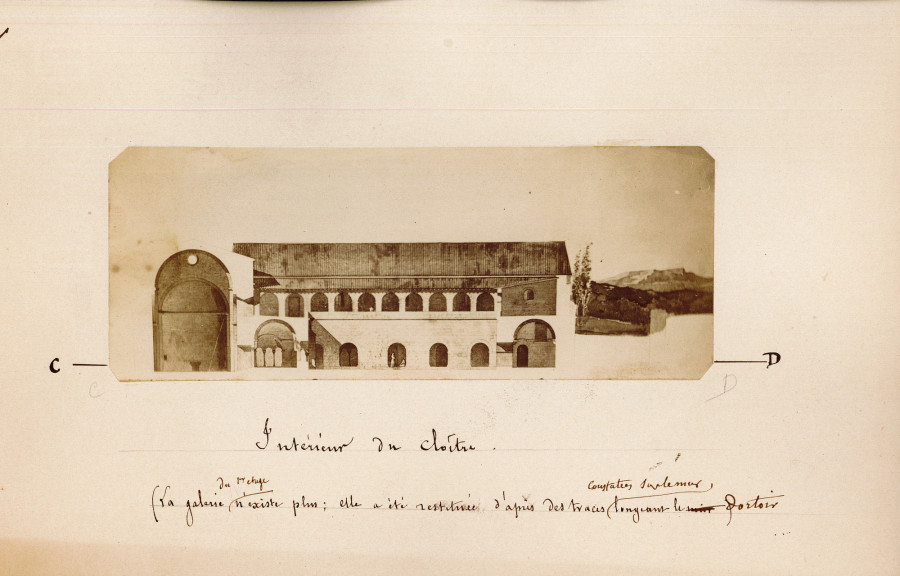 C D
C D
Intérieur du cloître.
du 1er étage constatées sur le mur,
(La galerie n'existe plus; elle a été restituée d'après des traces longeant le mur Dortoir
...